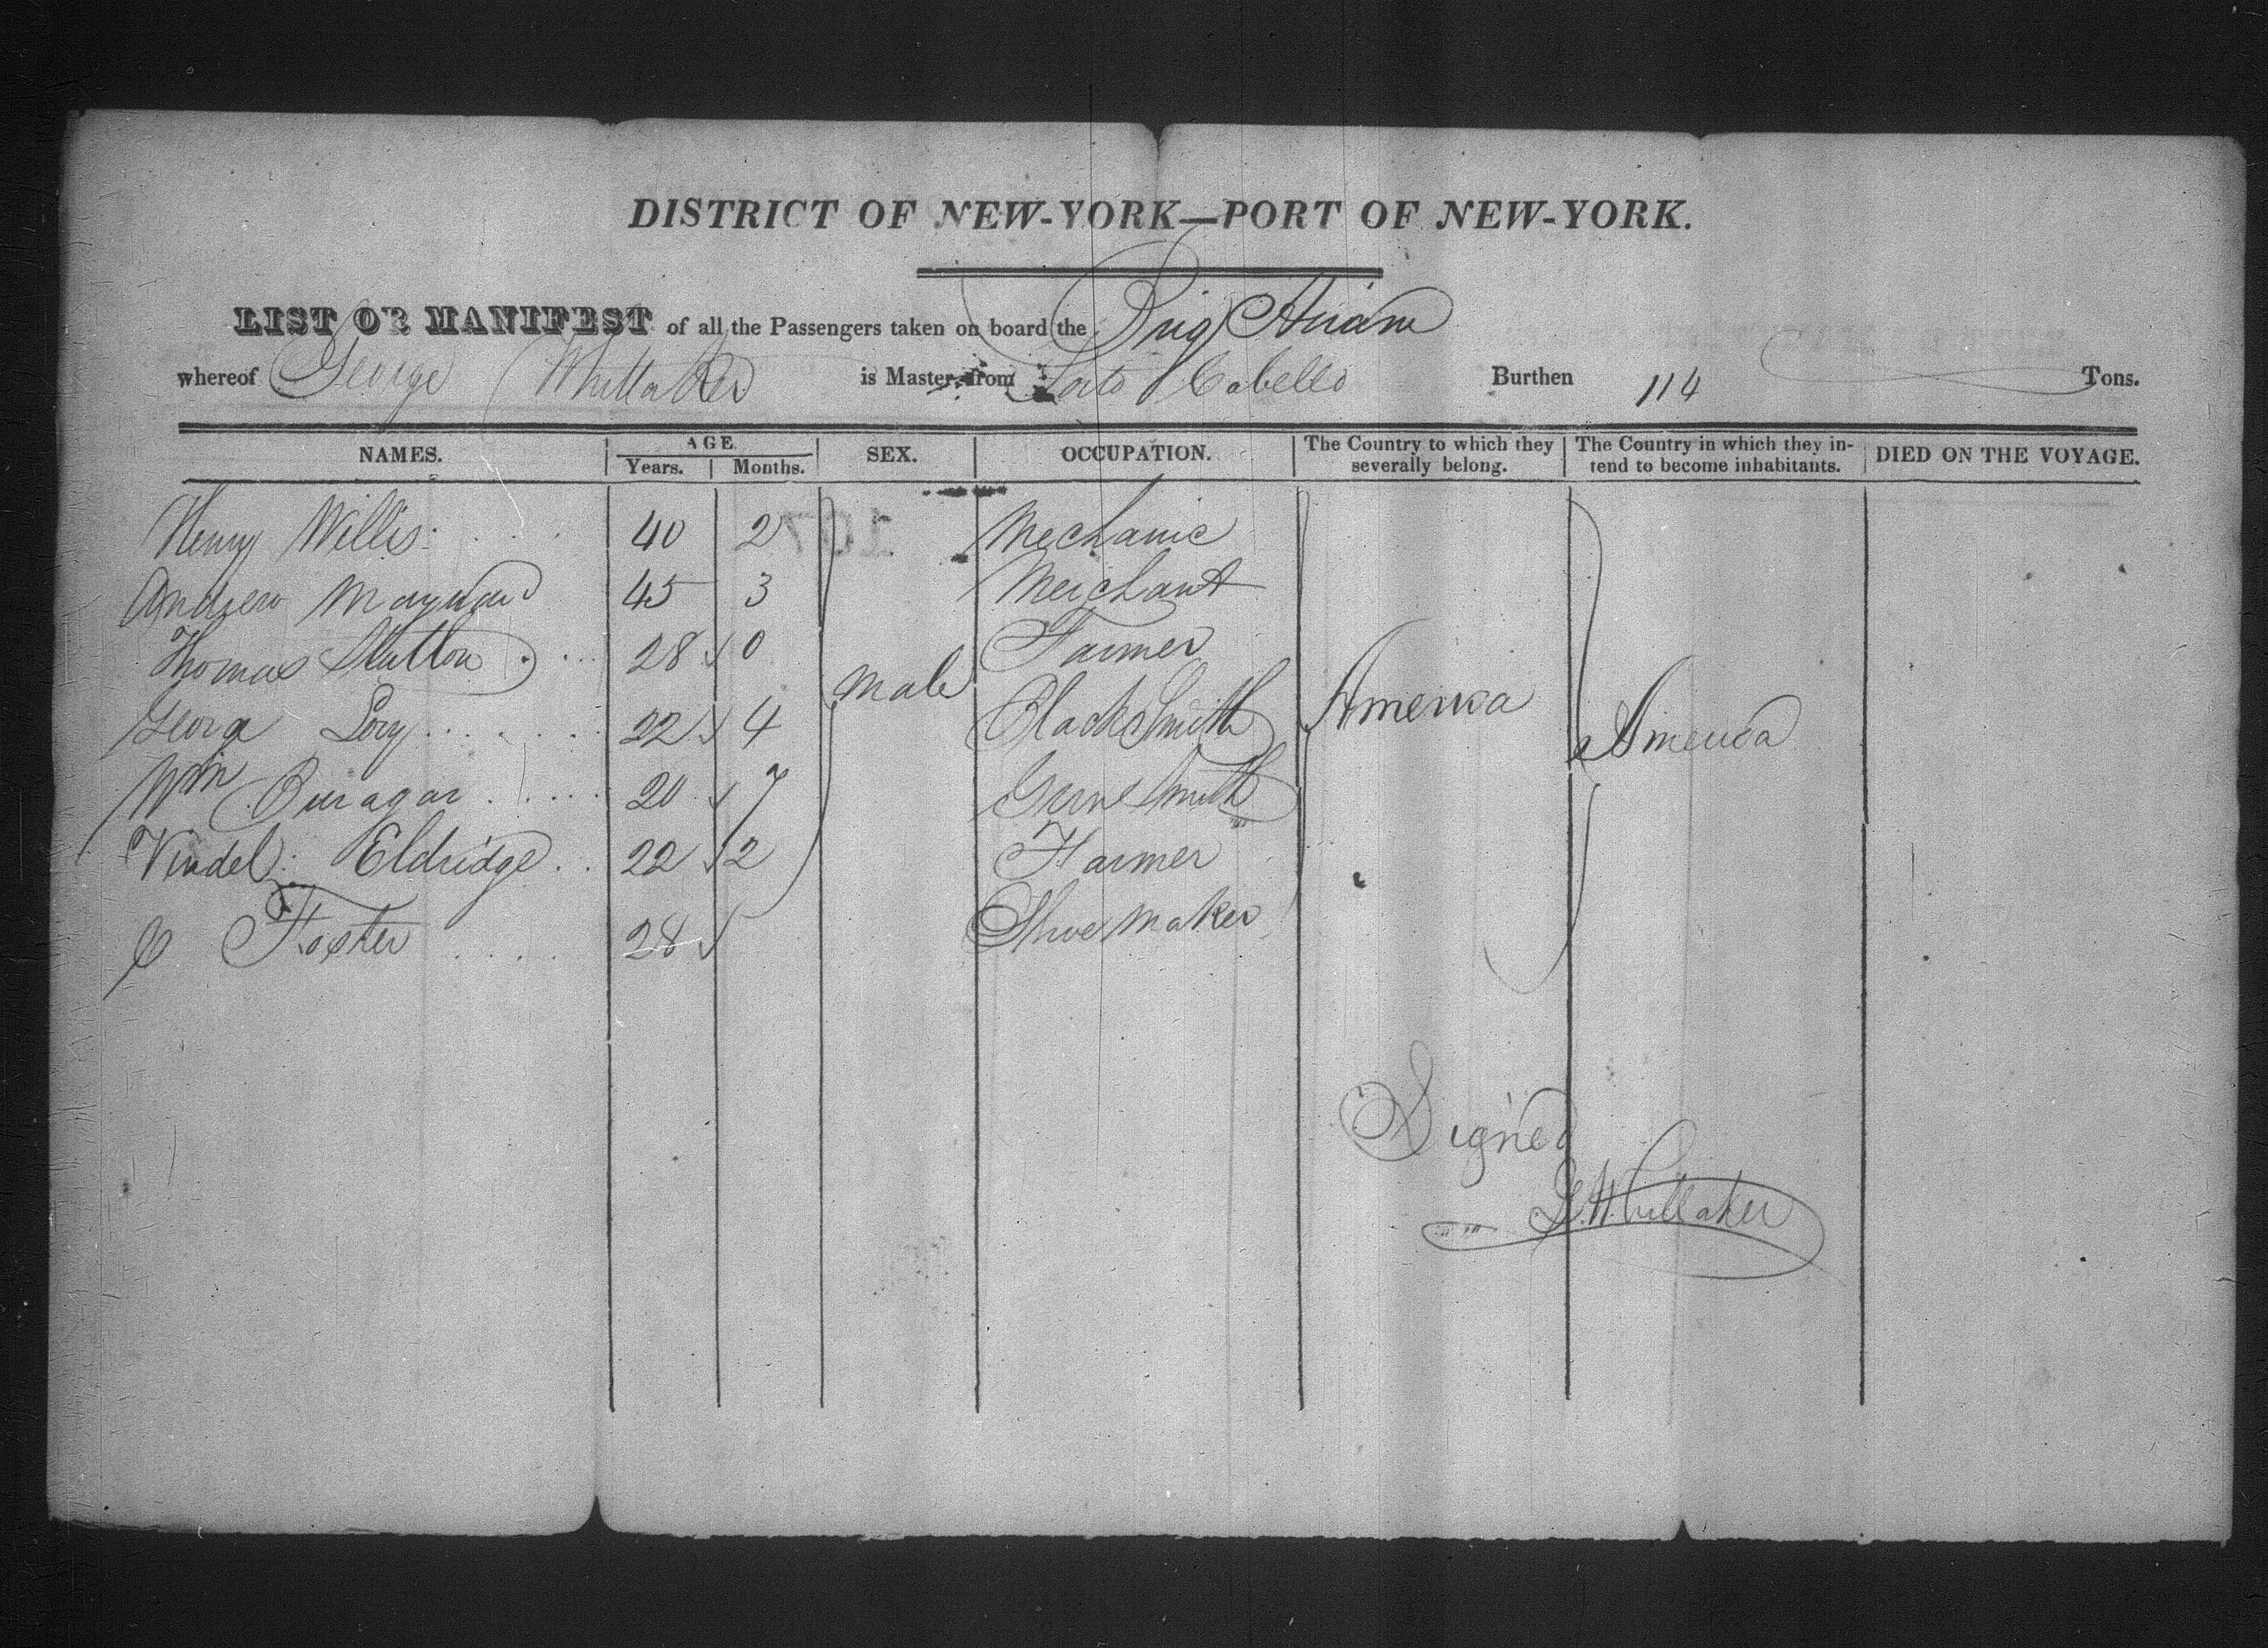 DISTRICT OF NEW-YORK—PORT OF NEW-YORK.
LIST OR MANIFEST of all the Passengers taken on board the Brig
whereof George Whittaker is Master, from Porto Cabello Burthen 114 Tons.
NAMES. AGE. Years. Months. SEX. OCCUPATION. The Country to which they severally belong. The Country in which they intend to become inhabitants. DIED ON THE VOYAGE.
Henry Willis 40 2 Mechanic
Andrew Maynard 45 3 Merchant
Thomas 28 0 Farmer
male
Georg 22 4 Black Smith America America
Wm 20 7 Smith
Eldridge 22 2 Farmer
C Foster 28 Shoe maker
Signed
Whittaker